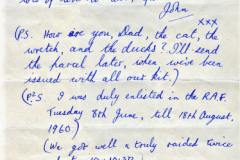 John
xxx
(P.S. How are you, Dad, the cat, the
wretch, and the ducks? I'll send
the parcel later, when we've been
issued with all our kit.)
(P2S I was duly enlisted in the R.A.F.
Tuesday 8th June, till 18th August,
1960)
(We got well & truly raided twice